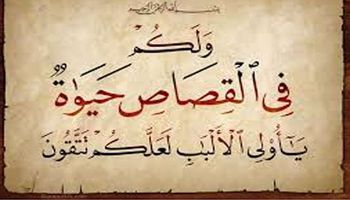 بسم الله الرحمن الرحيم
وَلَكُمْ
فِي ٱلْقِصَاصِ حَيَوٰةٌ
يَـٰٓأُو۟لِي ٱلْأَلْبَـٰبِ لَعَلَّكُمْ تَتَّقُونَ